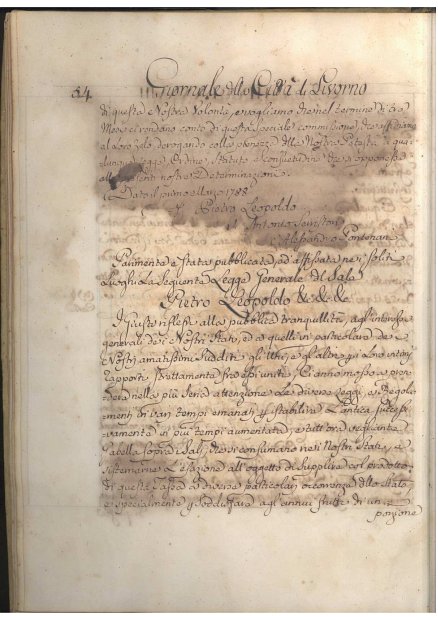 54. Giornale della Città di Livorno
di questa Nostra Volontà, e vogliamo che nel termine di
Mese ci rendano conto di questa speciale commissione, che affidiamo
al loro zelo derogando colla pienezza della Nostra Potestà di qua-
lunque Legge, Ordine, Statuto e consuetudine che si opponesse
alle presenti nostre Determinazioni.
Dato il primo Marzo 1788.
Pietro Leopoldo
Antonio
Alessandro Pontenani
Parimente è stata pubblicata, ed affissata nei soliti
Luoghi La Seguente Legge Generale del Sale
Pietro Leopoldo &c &c &c
I Giusti riflessi alla pubblica tranquillità, agl'interessi
generali dei Nostri Stati, ed a quelli in particolare de
Nostri amatissimi Sudditi gli Uni, e gl'altri
rapporti strettamente fra essi uniti, Ci anno mosso a pren-
dere nella più seria attenzione Le diverse Leggi, e Regola-
menti in vari tempi emanati p stabilire L'antica
vamente in più tempi aumentata, e tuttora vegliante
Tabella sopra i Sali, che si consumano nei Nostri Stati, e
sistemarne L'esazione all'oggetto di supplire col prodotto
di questa Tassa a diverse particolari occorrenze dello Stato,
e specialmente p soddisfare agl'annui frutti di un-
porzione